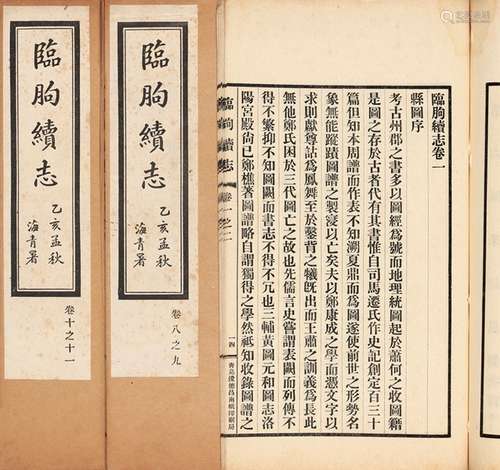 臨朐續志卷一
縣圖序
考古州郡之書多以圖經為號而地理統圖起於蕭何之收圖籍
是圖之存於古者代有其書惟自司馬遷氏作史記創定百三十
篇但知本周譜而作表不知溯夏鼎而為圖遂使前世之形勢名
象無能蹤蹟圖譜之裂寖以亡矣夫以鄭康成之學而憑文字以
求則獻尊詁為鳳舞至於鑿背之犧旣出而王肅之訓義為長此
無他鄭氏困於三代圖亡之故也先儒言史嘗謂表闕而列傳不
得不繁抑不知圖闕而書志不得不冗也三輔黃圖元和圖志洛
陽宮殿尚已鄭樵著圖譜略自謂獨得之學然祗知收錄圖譜之
臨朐續志
卷一之二
一四
臨朐續志
乙亥孟秋
海青署
卷八之九
臨朐續志
乙亥孟秋
海青署
卷十之十一